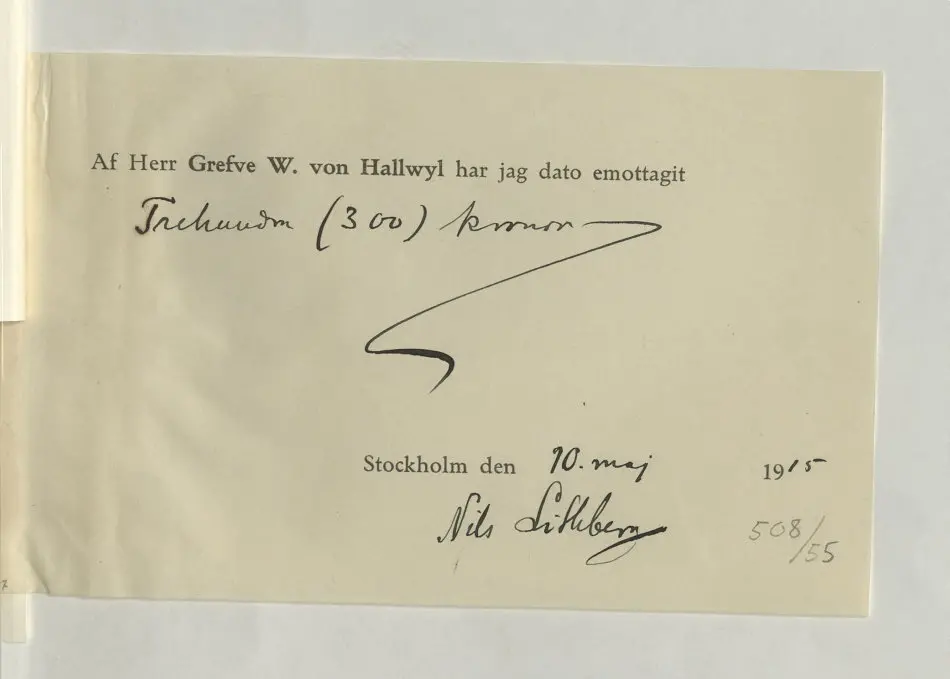 Af Herr Grefve W. von Hallwyl har jag dato emottagit
Trehundra (300) kronor
Stockholm den 10. maj 1915
Nils Lithberg
508/55